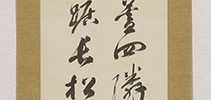 蓋四隣
踞長松